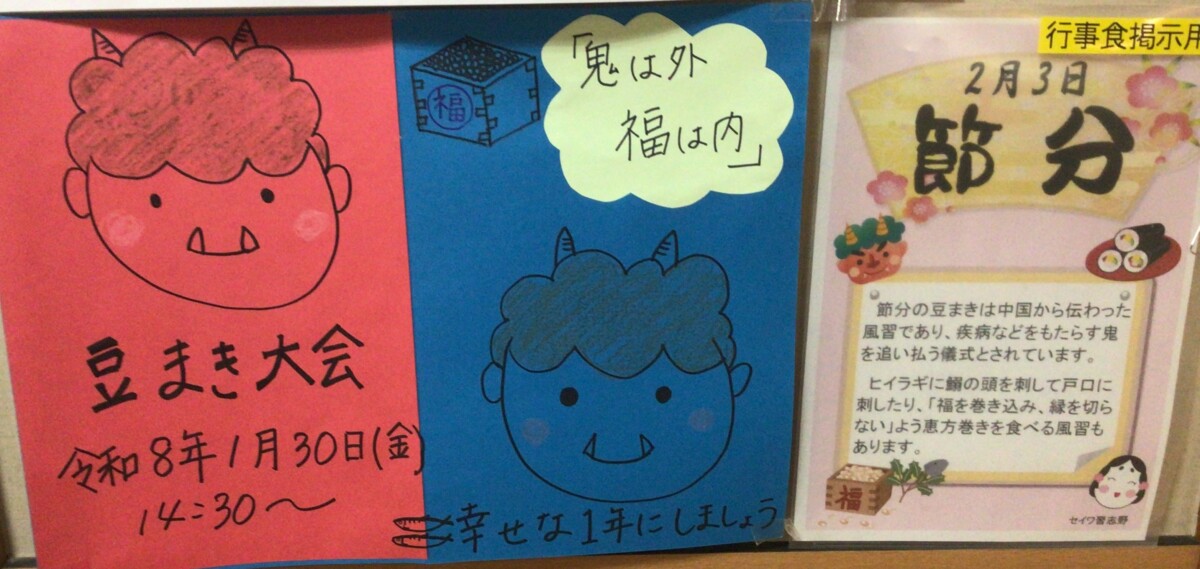 豆まき大会
令和8年1月30日(金)
14:30～
福
「鬼は外
福は内」
幸せな1年にしましょう
行事食掲示用
2月3日
節分
節分の豆まきは中国から伝わった
風習であり、疾病などをもたらす鬼
を追い払う儀式とされています。
ヒイラギに鰯の頭を刺して戸口に
刺したり、「福を巻き込み、縁を切ら
ない」よう恵方巻きを食べる風習も
あります。
福
セイワ習志野